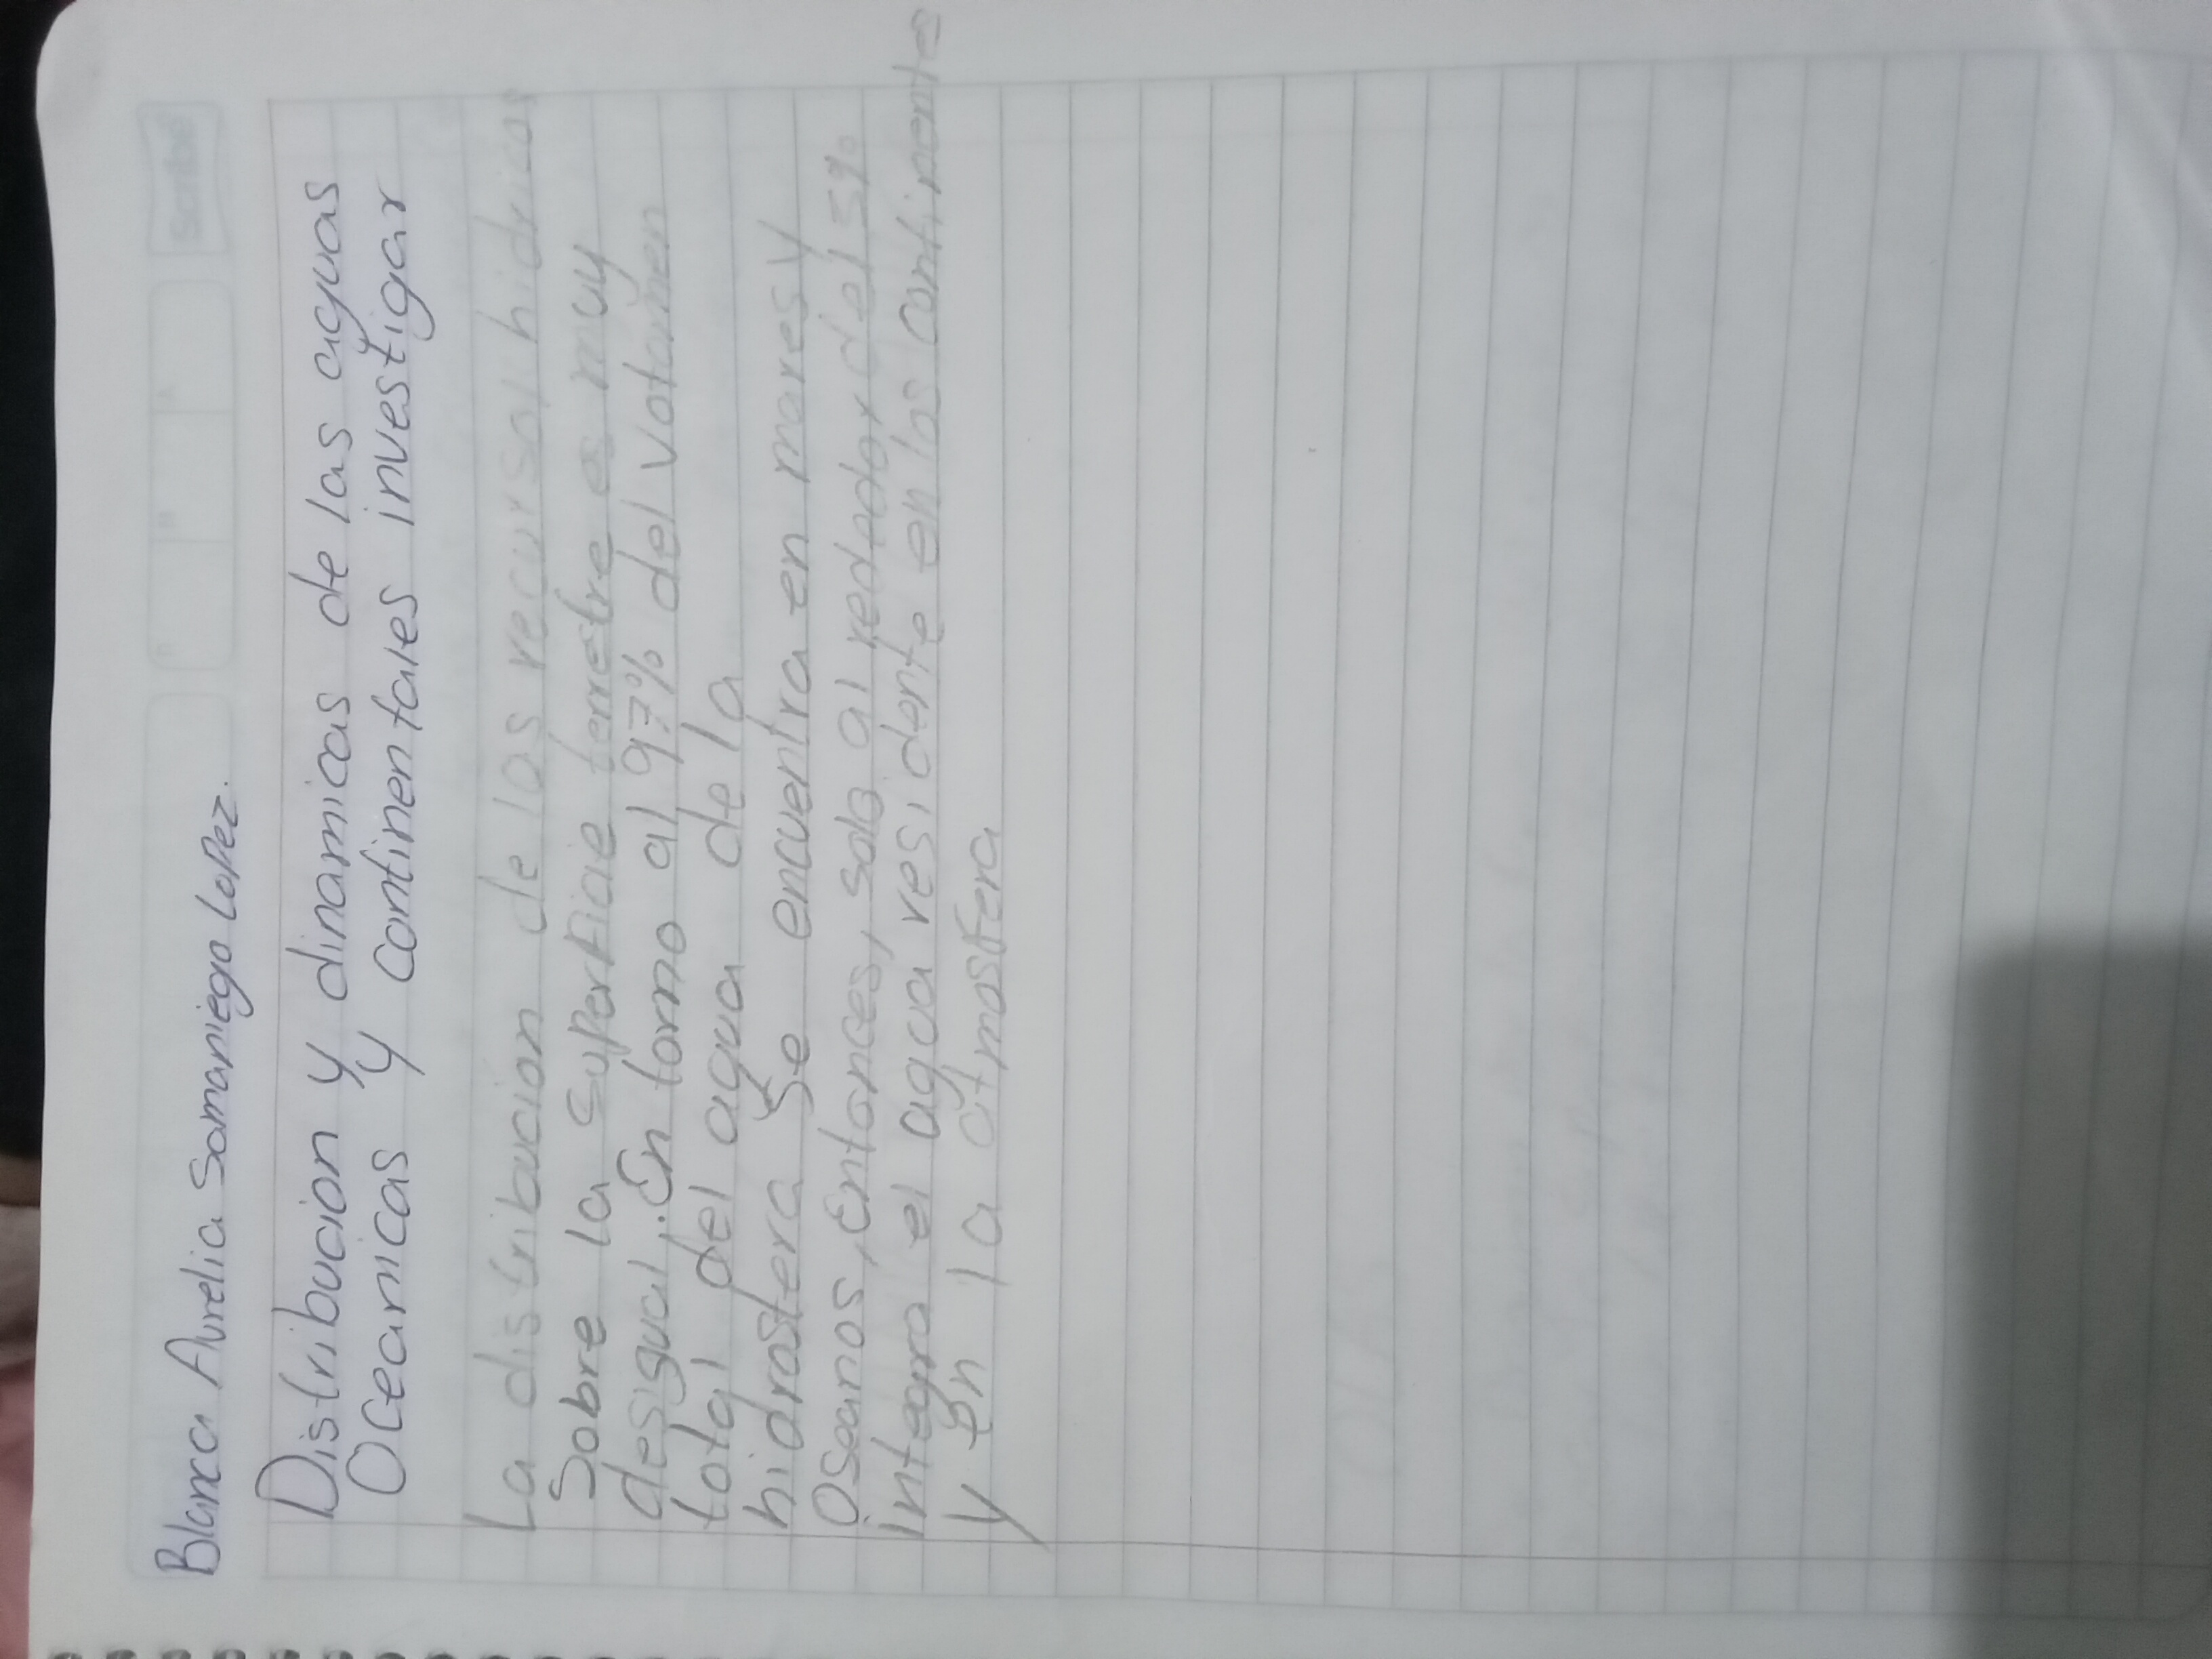 Scribe
Blanca Aurelia Samaniego Lopez.
Distribucion y dinamicas de las aguas
Oceanicas y continentales investigar
La distribucion de los recursos hidricos
Sobre la superficie terrestre es muy
desigual. En torno al 97% del votamen
total del agua de la
hidrosfera Se encuentra en mares y
Oseanos, Entonces, solo al rededor del 5%
integra el agua residente en los continentes
y en la atmosfera